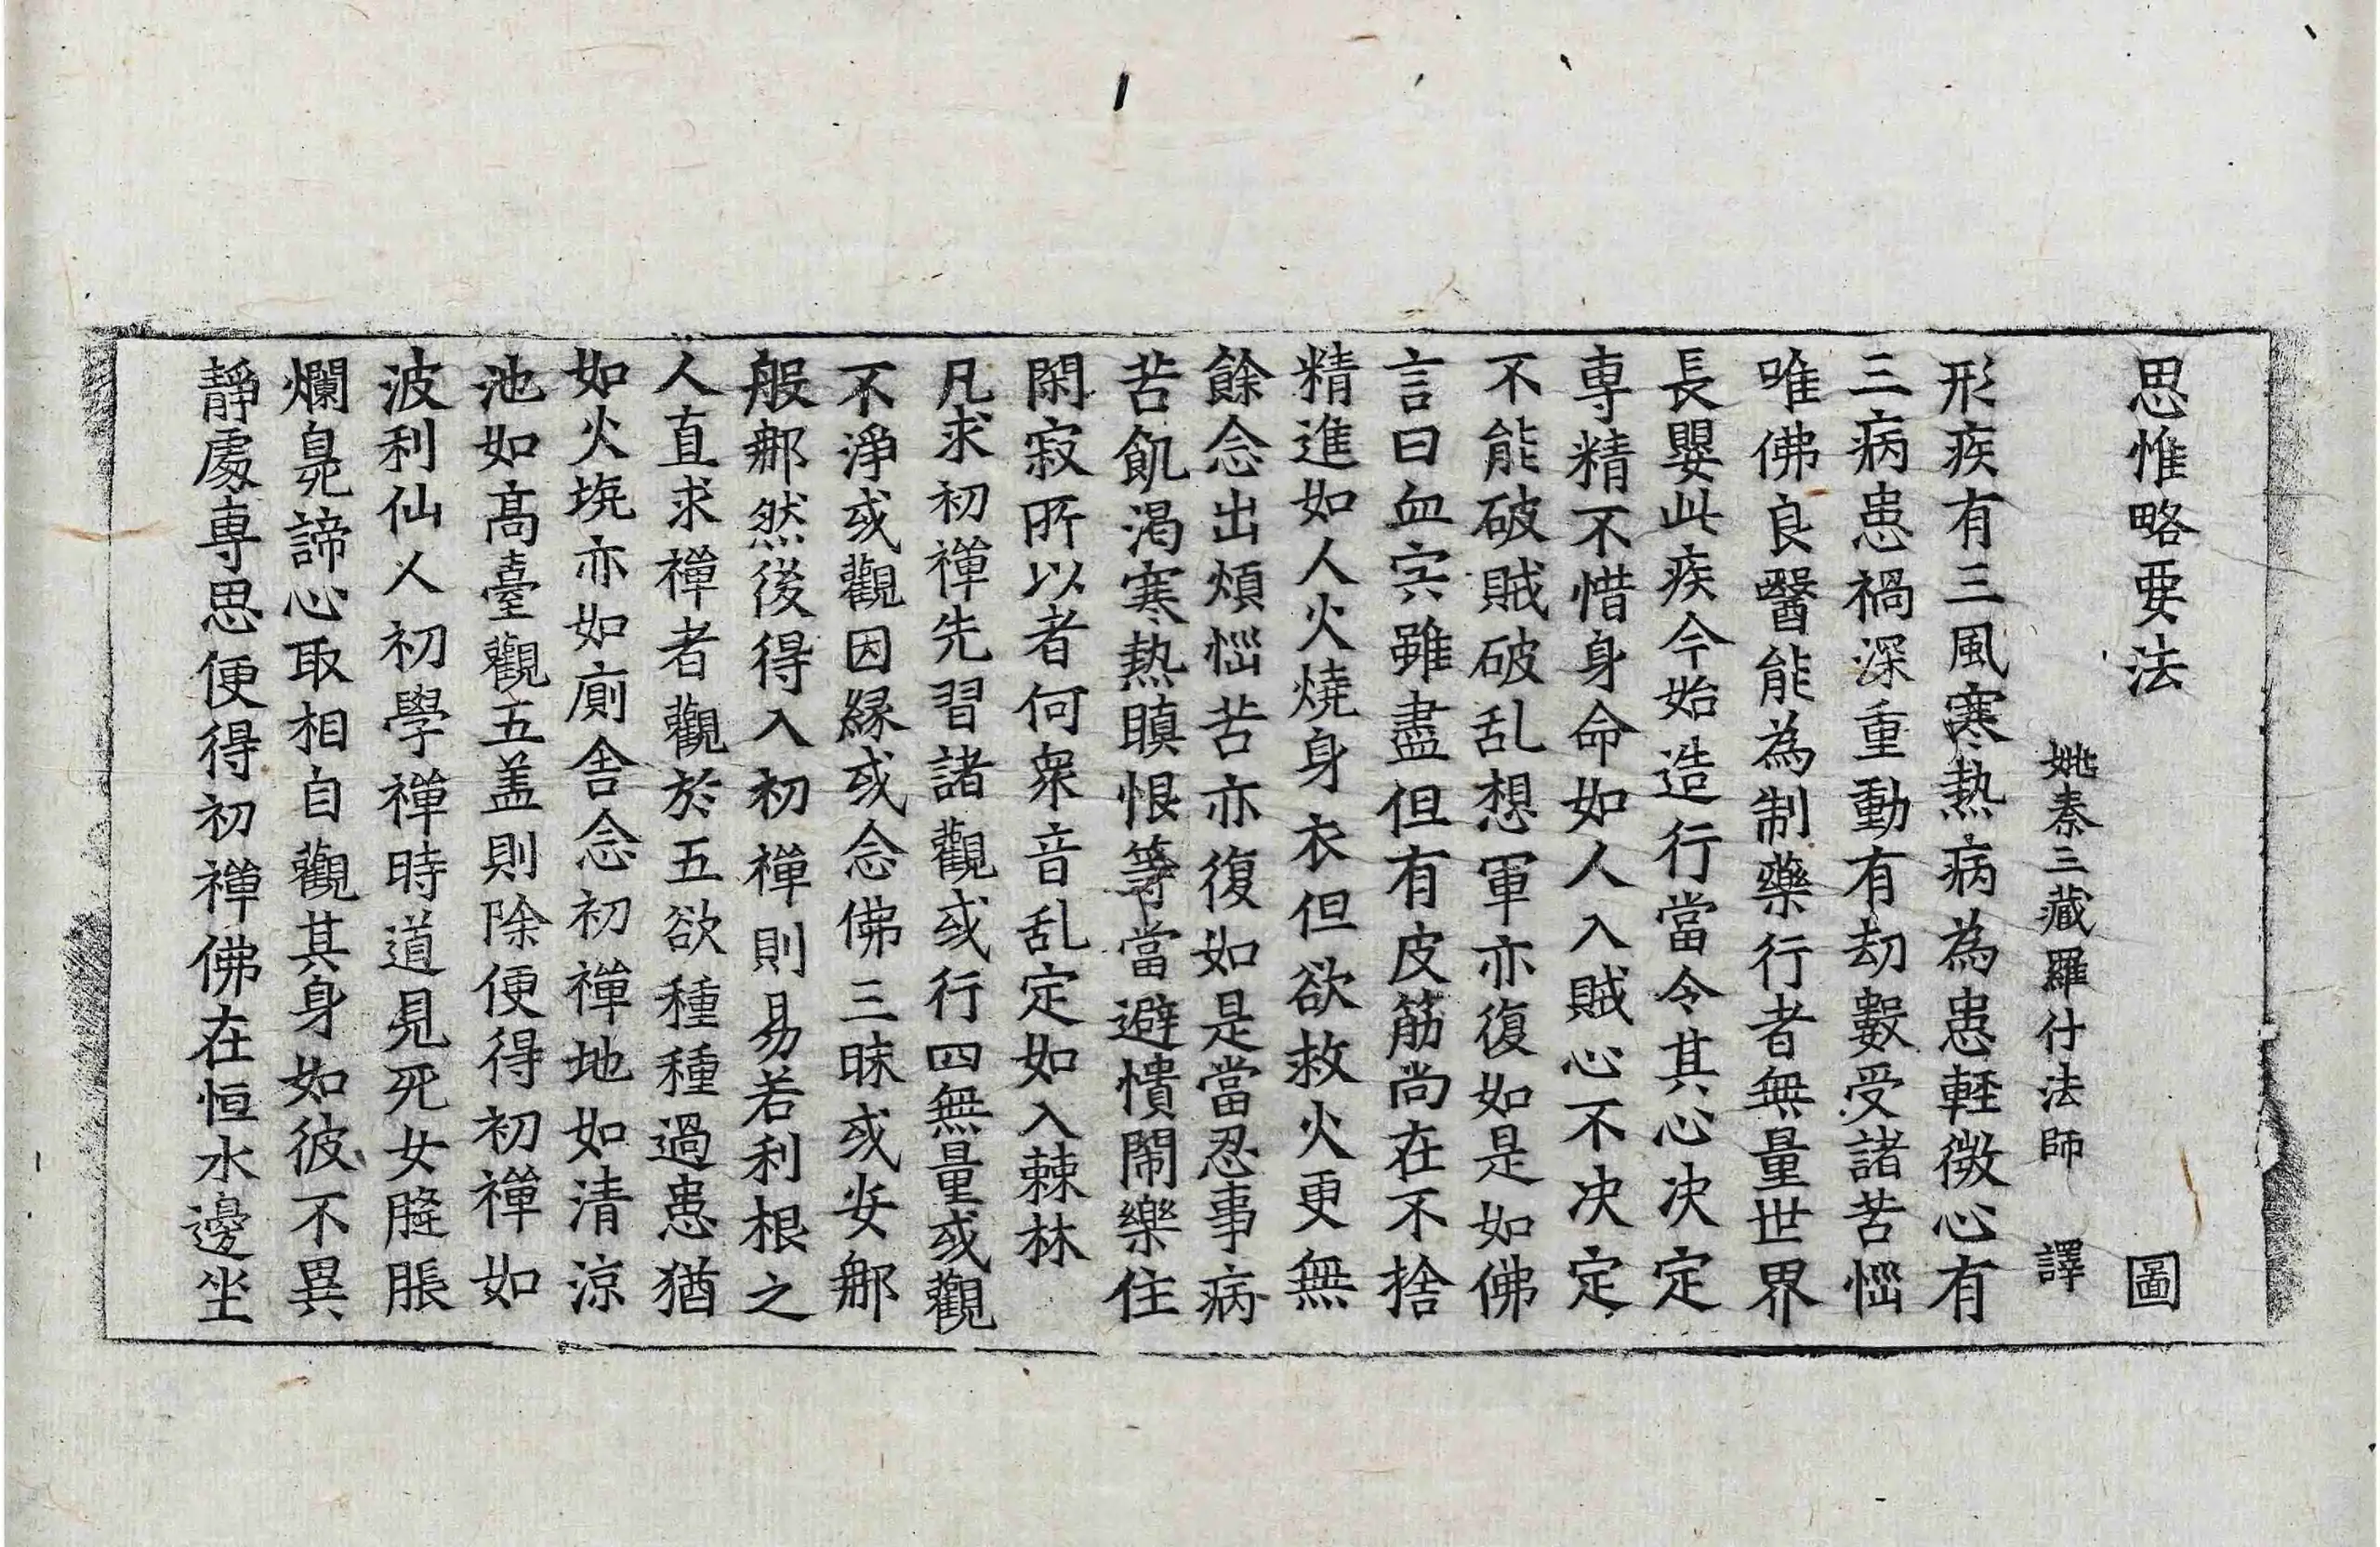 思惟略要法 圖
姚秦三藏羅什法師 譯
形疾有三風寒熱病為患輕微心有
三病患禍深重動有劫數受諸苦惱
唯佛良醫能為制藥行者無量世界
長嬰此疾今始造行當令其心决定
専精不惜身命如人入賊心不决定
不能破賊破乱想軍亦復如是如佛
言曰血宍雖盡但有皮筋尚在不捨
精進如人火燒身衣但欲救火更無
餘念出煩惱苦亦復如是當忍事病
苦飢渴寒熱瞋恨等當避憒閙樂住
閑寂所以者何衆音乱定如入棘林
凡求初禪先習諸觀或行四無量或觀
不淨或觀因緣或念佛三昧或安那
般那然後得入初禪則易若利根之
人直求禪者觀於五欲種種過患猶
如火坑亦如廁舍念初禪地如清涼
池如高臺觀五盖則除便得初禪如
波利仙人初學禪時道見死女膖脹
爛臰諦心取相自觀其身如彼不異
靜處専思便得初禪佛在恒水邊坐